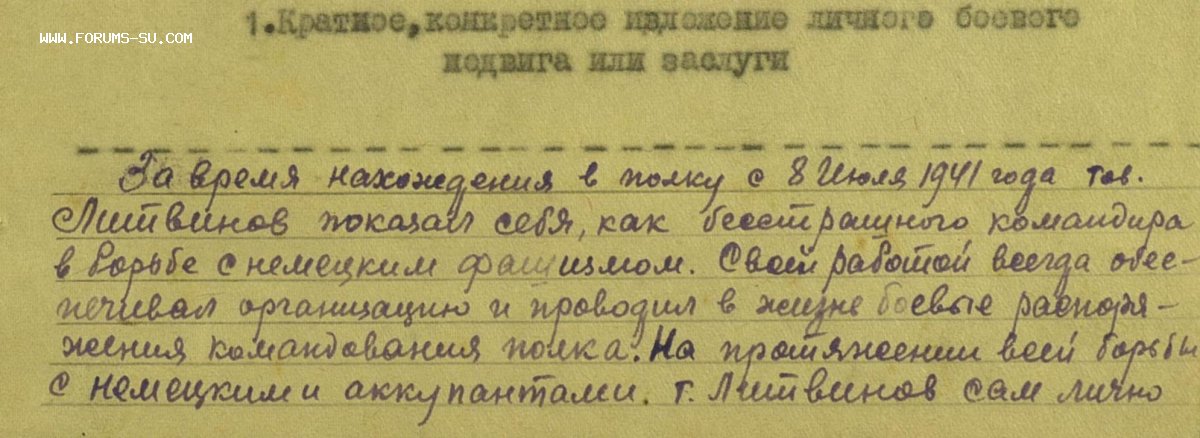 1.Краткое,конкретное изложение личного боевого
WWW.FORUMS-SU.COM
подвига или заслуги
За время нахождения в полку с 8 Июля 1941 года тов.
Литвинов показал себя, как бесстрашного командира
в борьбе с немецким фашизмом. Своей работой всегда обес-
печивал организацию и проводил в жизнь боевые распоря-
жения командования полка. На протяжении всей борьбы
с немецкими аккупантами. т. Литвинов сам лично